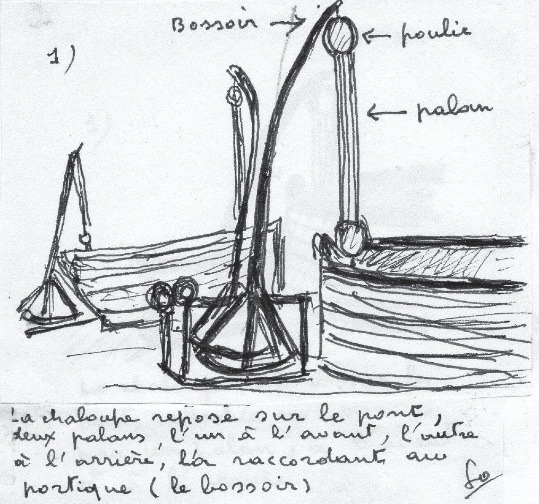 Bossoir
1)
poulie
palan
La chaloupe repose sur le pont,
deux palans, l'un à l'avant, l'autre
à l'arrière, la raccordant au
portique (le bossoir)